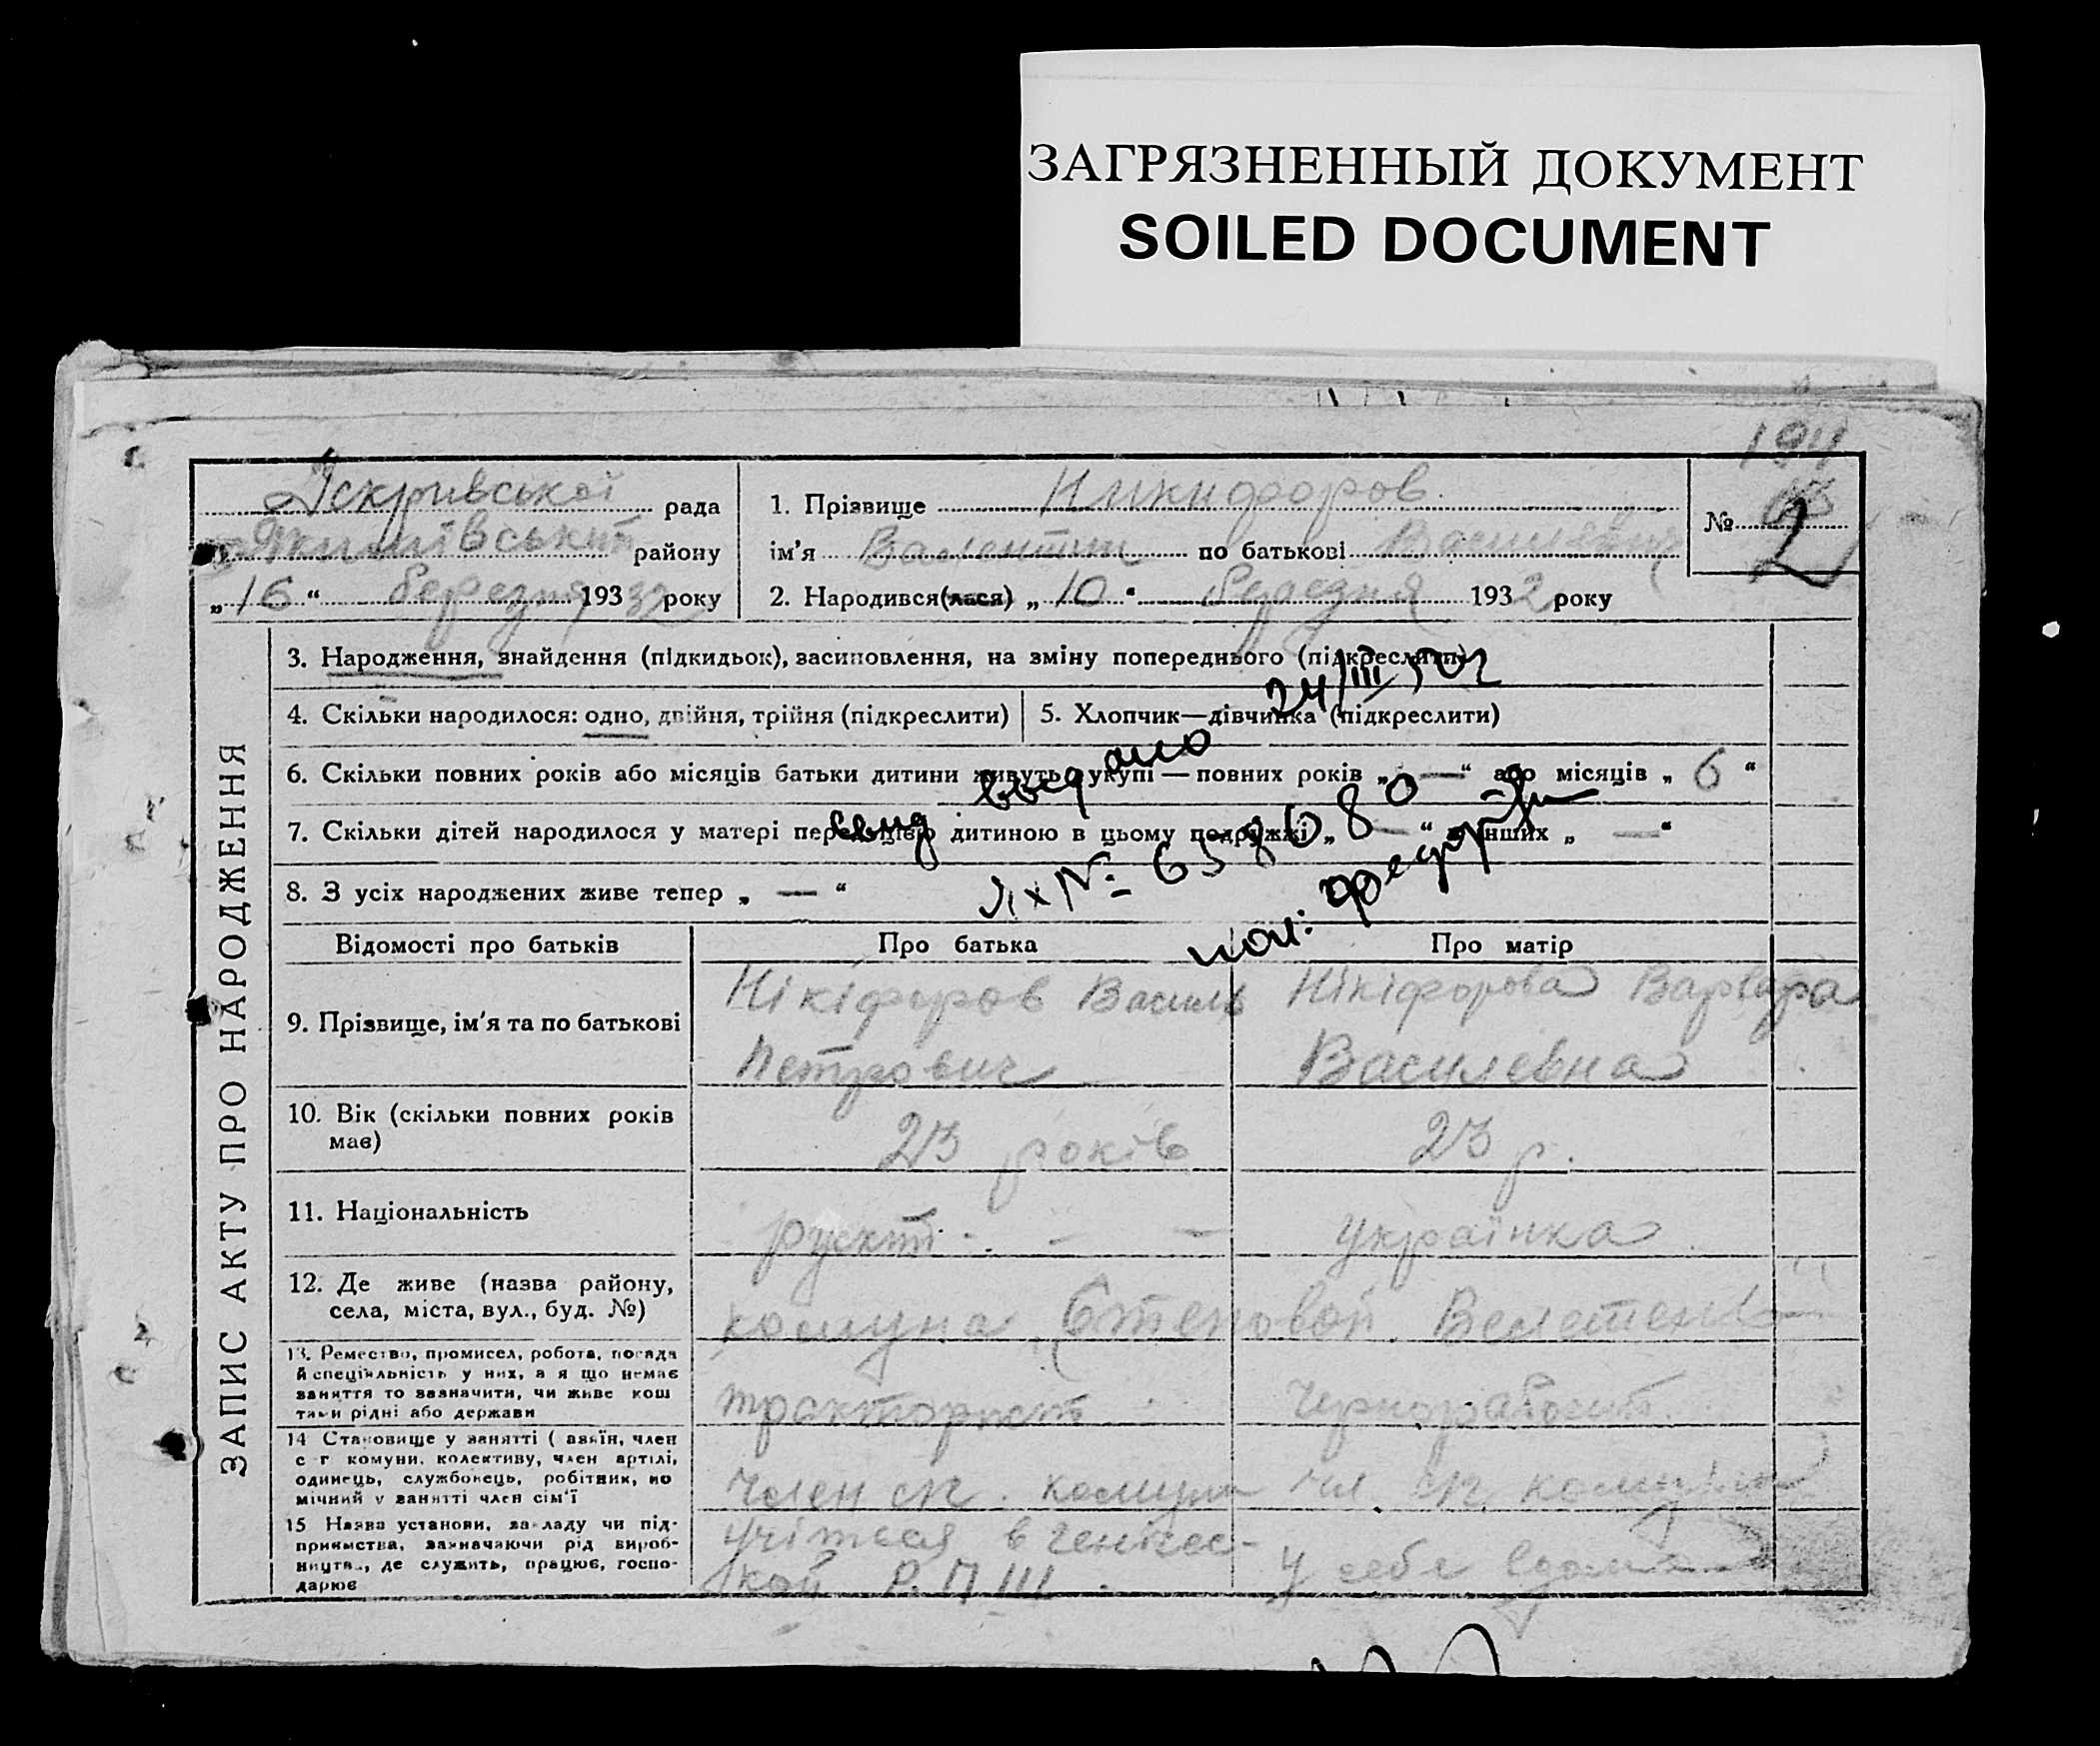 ЗАГРЯЗНЕННЫЙ ДОКУМЕНТ
SOILED DOCUMENT
194
Іскривської рада
району
„16“ березня 1932 року
1. Прізвище Никифоров
ім'я Валентин по батькові Васильевич
2. Народився(лася) „10“ березня 1932 року
№ 2
ЗАПИС АКТУ ПРО НАРОДЖЕННЯ
3. Народження, знайдення (підкидьок), засиновлення, на зміну попереднього (підкреслити)
4. Скільки народилося: одно, двійня, трійня (підкреслити)
5. Хлопчик—дівчинка (підкреслити)
6. Скільки повних років або місяців батьки дитини живуть укупі — повних років „—“ або місяців „6“
7. Скільки дітей народилося у матері перед цією дитиною в цьому подружжі „—“ в інших „—“
8. З усіх народжених живе тепер „—“
24/III
видано
№ 658680
Відомості про батьків
Про батька
Про матір
9. Прізвище, ім'я та по батькові
Нікіфоров Василь
Петрович
Нікіфорова Варвара
Василевна
10. Вік (скільки повних років
має)
23 років
23 р.
11. Національність
українка
12. Де живе (назва району,
села, міста, вул., буд. №)
комуна Степовой
13. Ремество, промисел, робота, посада
й спеціяльність у них, а я що немає
заняття то зазначити, чи живе кош
тами рідні або держави
тракторист
14 Становище у занятті ( азяїн, член
с г комуни, колективу, член артілі,
одинець, службовець, робітник, по
мічний у занятті член сім'ї
член
чл.
15 Назва установи, закладу чи під-
приємства, зазначаючи рід вироб-
ництва, де служить, працює, госпо-
дарює
учіться в генічес-
кой Р.П.Ш
у себе вдома